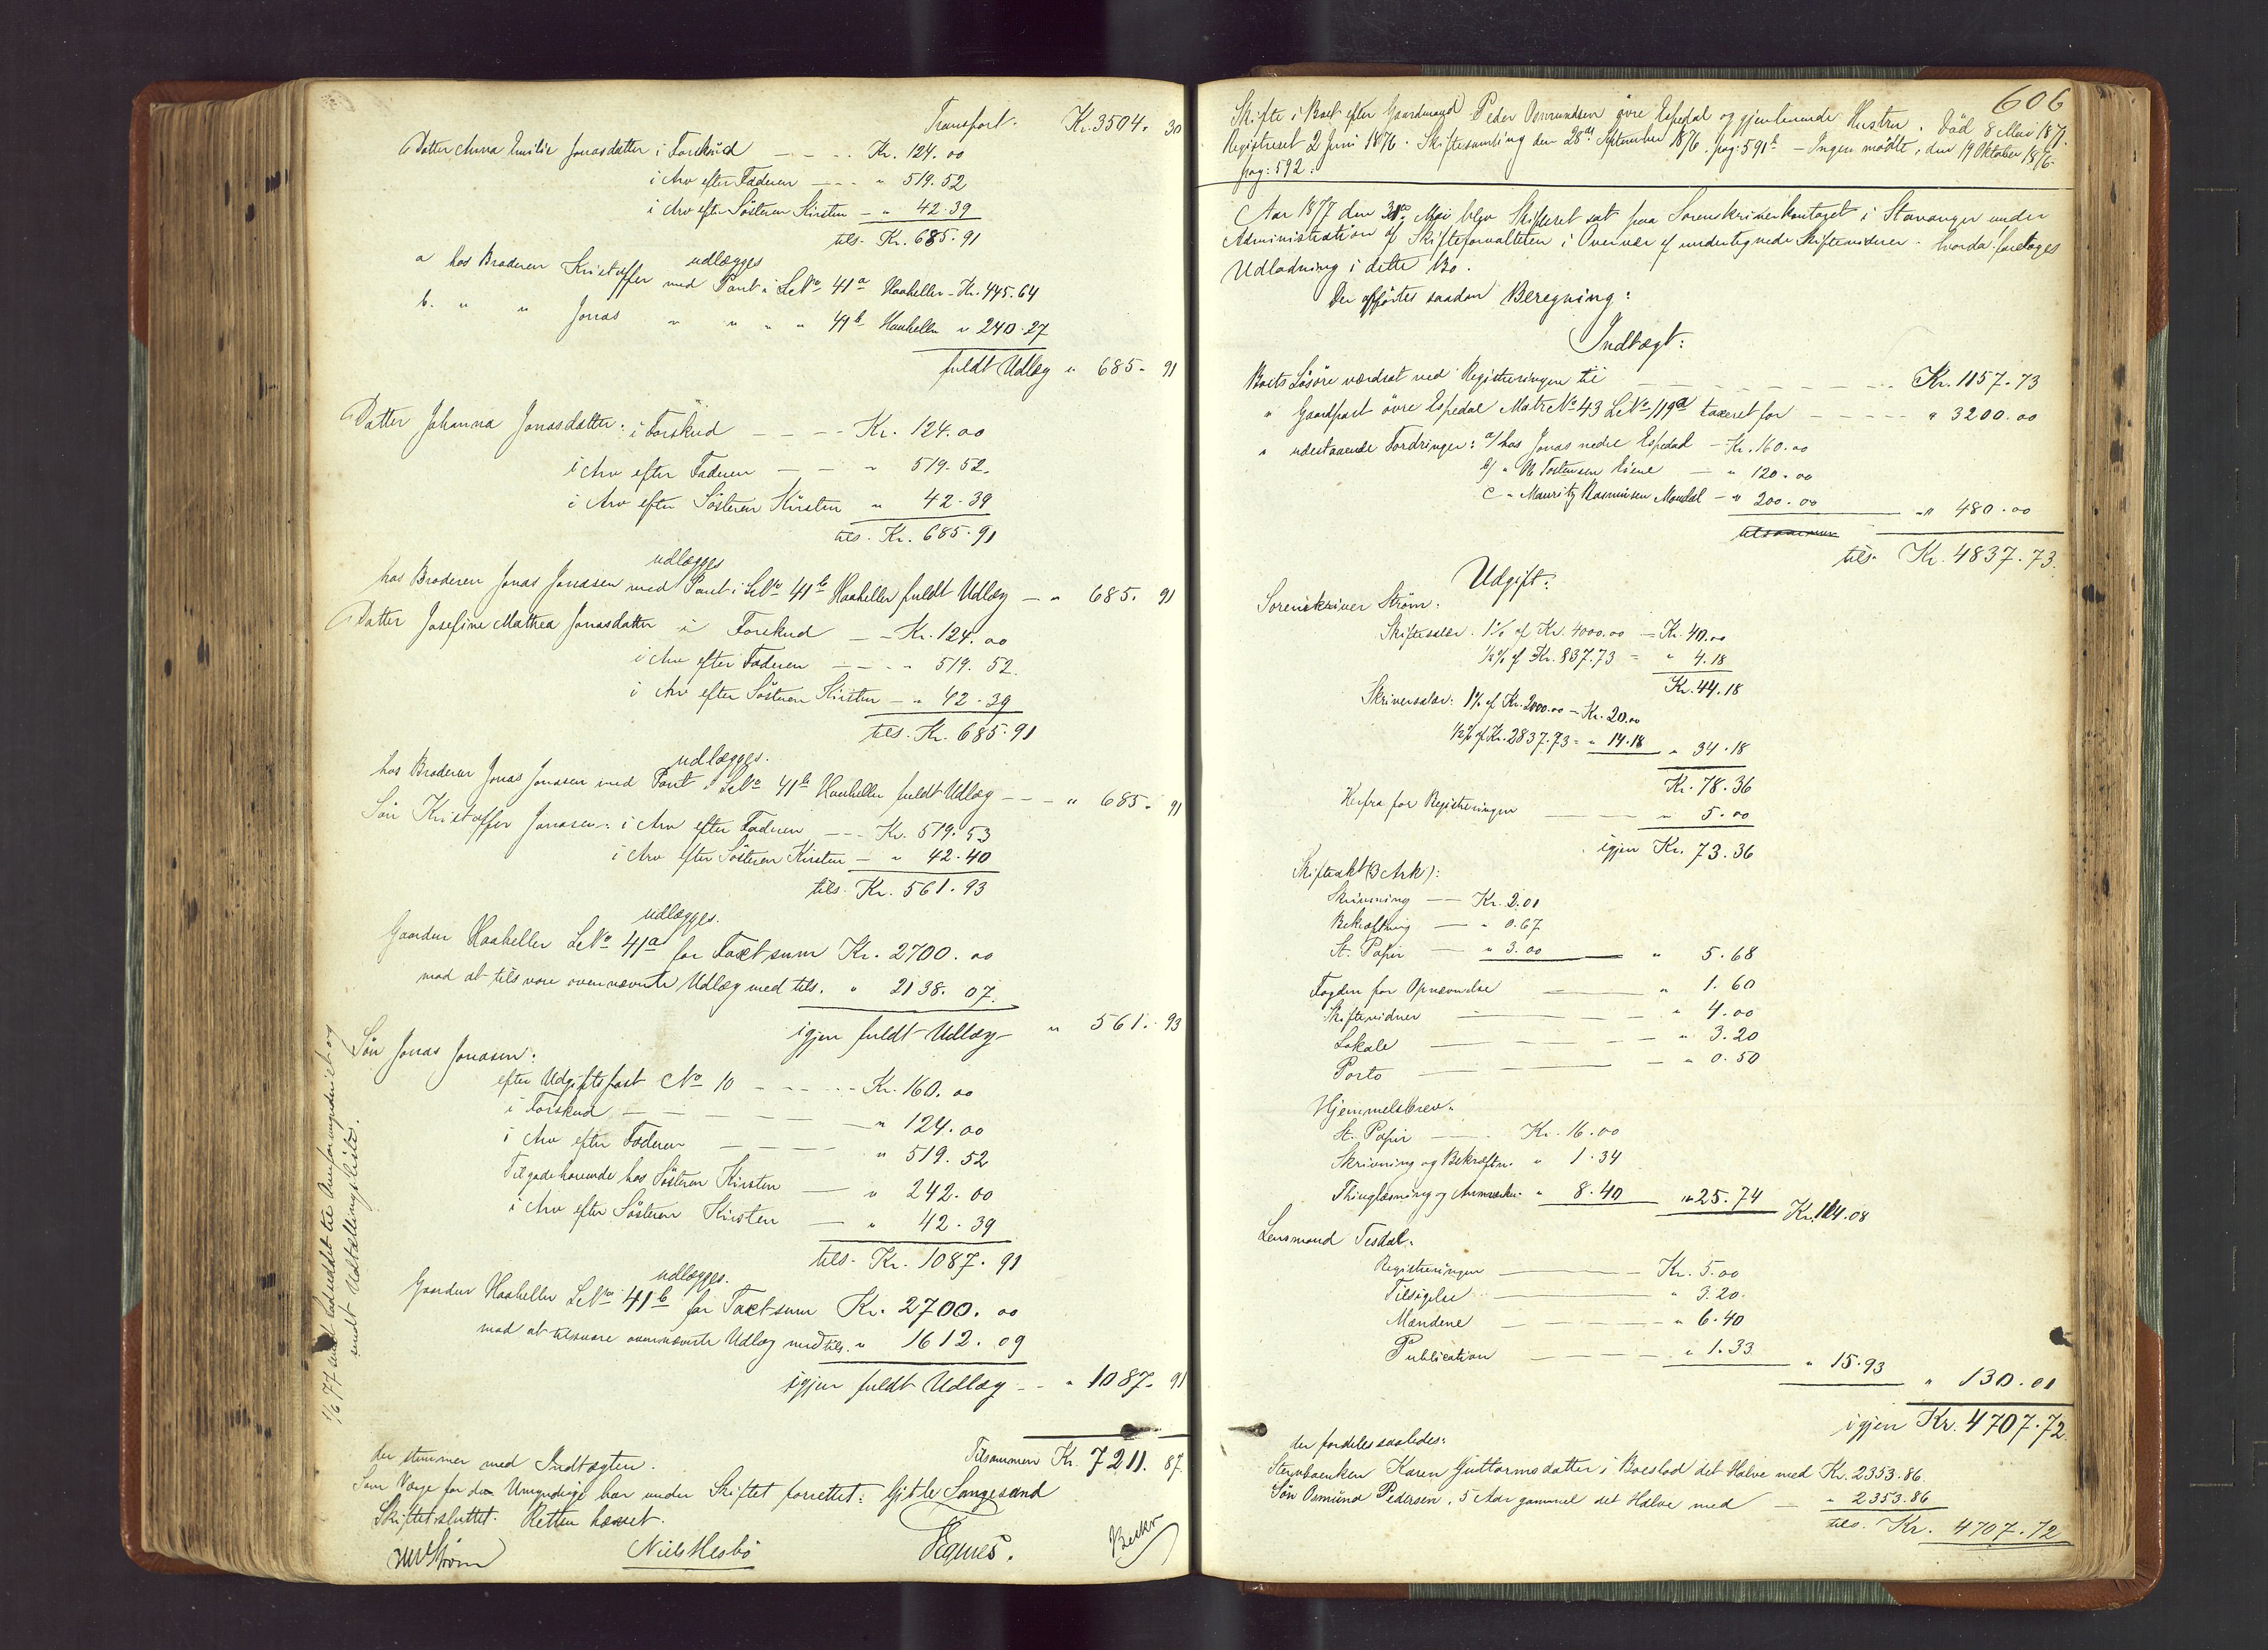 Transport. Kr. 3504. 30
Datter Anna Emilie Jonasdatter i Forskud — — - - Kr. 124. 00
i Arv efter Faderen — - - " 519. 52
i Arv efter Søsteren Kirsten — " 42. 39
tils. Kr. 685. 91
udlægges
a hos Broderen Kristoffer med Pant i LNo 41a Haaheller - Kr. 445. 64
b. " " Jonas " " " " 41b Haaheller " 240. 27
fuldt Udlæg " 685. 91
Datter Johanna Jonasdatter: i Forskud — — - - Kr. 124. 00
i Arv efter Faderen — — " 519. 52.
i Arv efter Søsteren Kirsten " 42. 39
tils. Kr. 685. 91
udlægges
hos Broderen Jonas Jonasen med Pant i LNo 41b Haaheller fuldt Udlæg — " 685. 91
Datter Josefine Mathea Jonasdatter i Forskud — - Kr. 124. 00
i Arv efter Faderen — - - - 519. 52.
i Arv efter Søsteren Kirsten — " 42. 39
tils. Kr. 685. 91
udlægges.
hos Broderen Jonas Jonasen med Pant i LNo 41b Haaheller fuldt Udlæg — - — " 685. 91
Søn Kristoffer Jonasen: i Arv efter Faderen — - - Kr. 519. 53
i Arv efter Søsteren Kirsten — " 42. 40
tils. Kr. 561. 93
udlægges.
Gaarden Haaheller LNo 41a for Taxtsum Kr. 2700. 00
mod at tilsvare ovennævnte Udlæg med tils. " 2138. 07.
igjen fuldt Udlæg " 561. 93
Søn Jonas Jonasen:
efter Udgiftspost No 10 - - — - - Kr. 160. 00
i Forskud — — — — — " 124. 00
i Arv efter Faderen — — — — " 519. 52
Tilgodehavende hos Søsteren Kirsten — " 242. 00
i Arv efter Søsteren Kirsten — " 42. 39
tils. Kr. 1087. 91
udlægges.
Gaarden Haaheller LNo 41b for Taxtsum Kr. 2700. 00
mod at tilsvare ovennævnte Udlæg med tils. " 1612. 09
igjen fuldt Udlæg - - " 1087. 91
Tilsammen Kr. 7211. 87.
der stemmer med Indtægten.
Som Værge for de Umyndige har under Skiftet forrettet: Gitle Songesand
Skiftet sluttet. Retten hævet.
Niels Hesbø
1/6 77 sendt
sendt Udstællingsliste.
606
Skifte i Boet efter Gaardmand Peder Osmundsen øvre Espedal og gjenlevende Hustru. Død 8 Mai 1871.
Registreret 2 Juni 1876. Skiftesamling den 28de September 1876. pag: 591b - Ingen mødte, den 19 Oktober 1876.
pag: 592.
Aar 1877 den 31te Mai blev Skifteret sat paa Sorenskriverkontoret i Stavanger under
Administration af Skifteforvalteren i Overvær af undertegnede Skiftevidner. hvorda foretoges
Udlodning i dette Bo.
Der opførtes saadan Beregning:
Indtægt:
Boets Løsøre værdsat ved Registreringen til — — — — — - - - Kr. 1157. 73
" Gaardpart øvre Espedal MatrNo 43 LNo 119a taxeret for — - - - - " 3200. 00
" udestaaende Fordringer: a/ hos Jonas nedre Espedal — Kr. 160. 00
b/ " Ol. Tostensen Eiene — " 120. 00
c " Mauritz Rasmusen Mondal — " 200. 00 " 480. 00
tils. Kr. 4837. 73.
Udgift:
Sorenskriver Strøm:
Skiftesalær. 1% af Kr. 4000.00 — Kr. 40. 00
1/2% af Kr. 837. 73 = " 4. 18
Kr. 44. 18
Skriversalær: 1% af Kr. 2000.00 — Kr. 20. 00
1/2% af Kr. 2837. 73 = " 14. 18 " 34. 18
Kr. 78. 36
Herfra for Registreringen — — — " 5. 00
igjen Kr. 73. 36
Skifteakt (3 Ark):
Skrivning — — Kr. 2. 01
Bekræftning — " 0. 67
St. Papir — " 3. 00 " 5. 68
Fogden for Opnævnelse — " 1. 60
Skiftevidner — — — " 4. 00
Lokale — — — — " 3. 20
Porto — — — " 0. 50
Hjemmelsbrev.
St. Papir — — Kr. 16. 00
Skrivning og Bekræftn. " 1. 34
Thinglæsning og Anmærkn. " 8. 40 " 25. 74 Kr. 114. 08
Lensmand Tesdal.
Registreringen — — Kr. 5. 00
Tilsigelse — — " 3. 20.
Mændene — — — — " 6. 40
Publication — — — " 1. 33 " 15. 93 " 130. 01
igjen Kr. 4707. 72.
der fordeles saaledes:
Stervboenken Karen Guttormsdatter i Boeslod det Halve med Kr. 2353. 86.
Søn Osmund Pedersen, 5 Aar gammel det Halve med — " 2353. 86
tils. Kr. 4707. 72